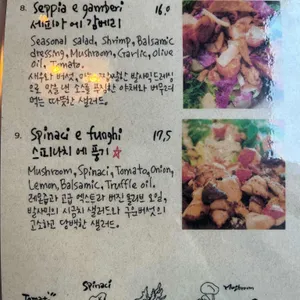 8. Seppia e gamberi 16.0
세피아 에 감베리
Seasonal salad, Shrimp, Balsamic
dressing, Mushroom, Garlic, Olive
oil, Tomato.
새우와 버섯,
샐러드.
9. Spinaci e funghi 17,5
스피나치 에 풍기 ☆
Mushroom, Spinaci, Tomato, Onion,
Lemon, Balsamic, Truffle oil.
레몬즙과 고급 엑스트라 버진 올리브 오일,
발사믹의 시금치 샐러드와 구운버섯의
고소하고 담백한 샐러드.
Spinaci
Tomato
Mushroom